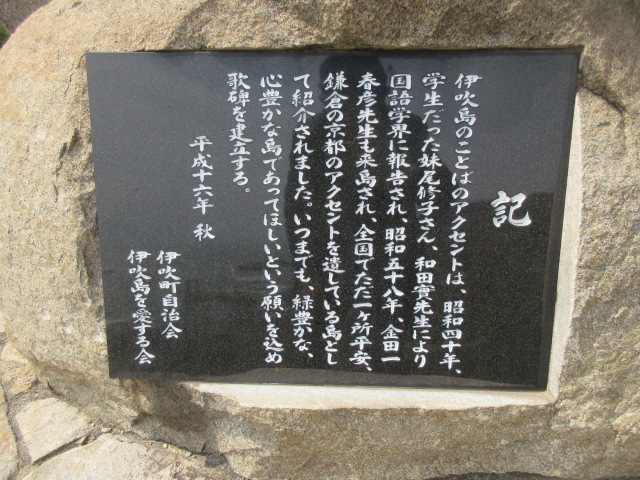 記
伊吹島のことばのアクセントは、昭和四十年、
学生だった妹尾修子さん、和田實先生により
国語学界に報告され、昭和五十八年、金田一
春彦先生も来島され、全国でただ一ヶ所平安、
鎌倉の京都のアクセントを遺している島とし
て紹介されました。いつまでも、緑豊かな、
心豊かな島であってほしいという願いを込め
歌碑を建立する。
平成十六年 秋
伊吹町自治会
伊吹島を愛する会